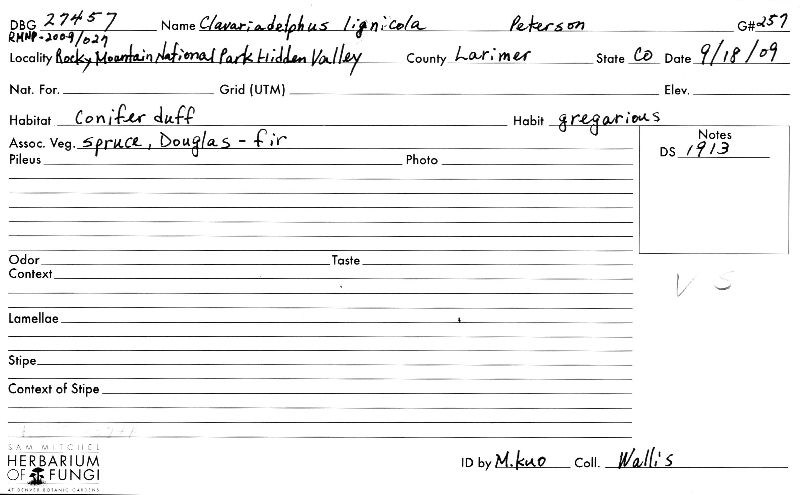 DBG 27457 Name Clavariadelphus lignicola Peterson G#257
RMNP-2009/027
Locality Rocky Mountain National Park Hidden Valley County Larimer State CO Date 9/18/09
Nat. For. Grid (UTM) Elev.
Habitat Conifer duff Habit gregarious
Assoc. Veg. spruce, Douglas-fir Notes
Pileus Photo DS 1913
Odor Taste
Context
V S
Lamellae
Stipe
Context of Stipe
SAM MITCHEL
HERBARIUM
OF FUNGI
AT DENVER BOTANIC GARDENS
ID by M.Kuo Coll. Wallis